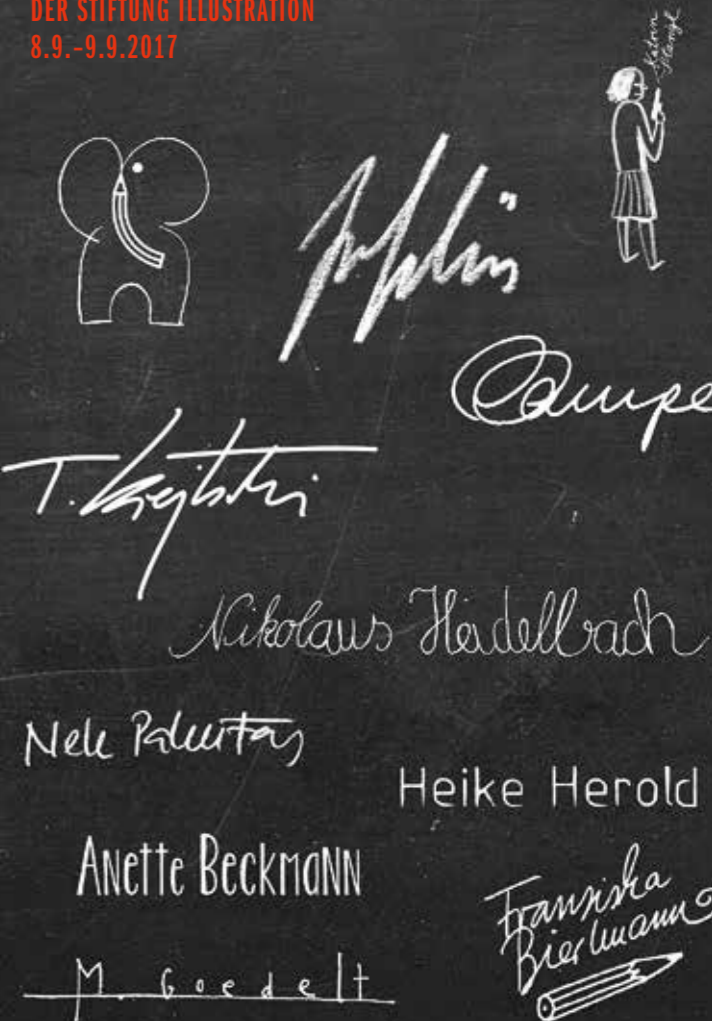 DER STIFTUNG ILLUSTRATION
8.9.–9.9.2017
Katrin
Stangl
T.
Nikolaus Heidelbach
Nele Palmtag
Heike Herold
Anette Beckmann
Franziska
Biermann
M. Goedelt